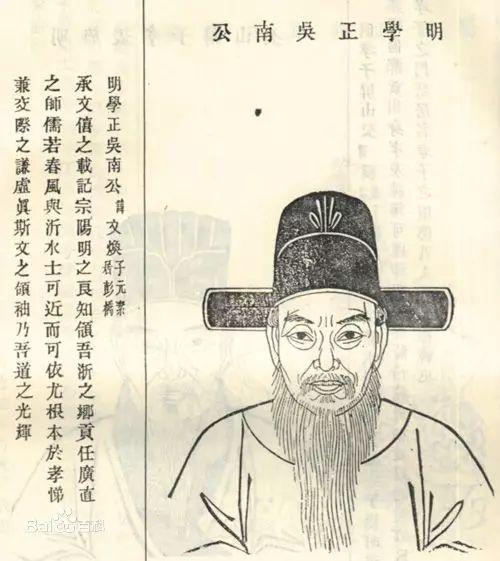 明學正吳南公
明學正吳南公諱文煥子元素彭橋
承文僖之載記宗陽明之良知領吾浙之鄉貢任廣直
之師儒若春風與沂水士可近而可依尤根本於孝悌
兼交際之謙虛眞斯文之領袖乃吾道之光輝
Baidu百科